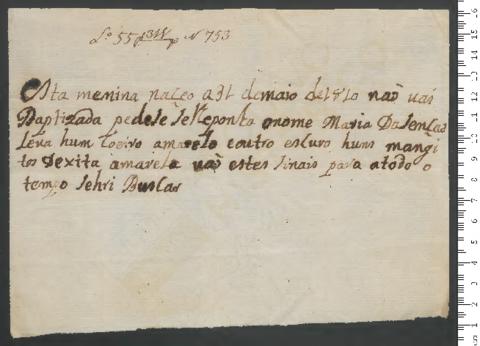 Lº 55 f 315 Nº 753
Esta menina naceo a 31 demaio de 1810 naõ vai
Baptizada pedese selleponha onome Maria Da
leva hum coeiro amarelo eoutro escuro huns mangi
tos dexita amarela vaõ estes sinais para atodo o
tempo sehir Buscar